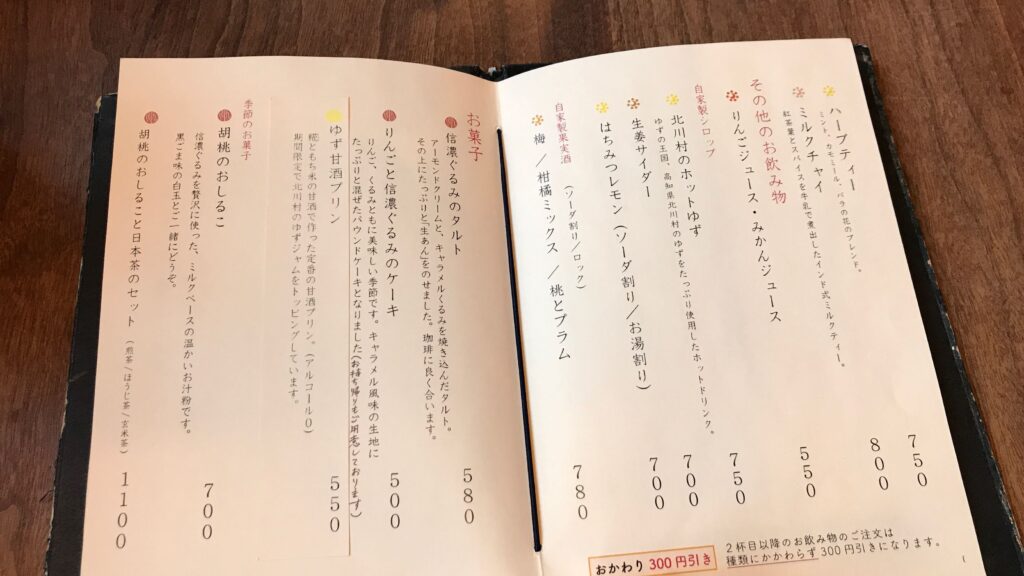 ハーブティー
ミント、カモミール、バラの花のブレンド。
750
ミルクチャイ
紅茶葉とスパイスを牛乳で煮出したインド式ミルクティー。
800
その他のお飲み物
りんごジュース・みかんジュース
550
自家製シロップ
北川村のホットゆず
ゆずの王国、高知県北川村のゆずをたっぷり使用したホットドリンク。
750
生姜サイダー
700
はちみつレモン(ソーダ割り/お湯割り)
700
自家製果実酒 (ソーダ割り/ロック)
梅 / 柑橘ミックス / 桃とプラム
780
おかわり 300円引き
2杯目以降のお飲み物のご注文は
種類にかかわらず300円引きになります。
お菓子
信濃ぐるみのタルト
アーモンドクリームと、キャラメルくるみを焼き込んだタルト。
その上にたっぷりと「生あん」をのせました。珈琲に良く合います。
580
りんごと信濃ぐるみのケーキ
りんご、くるみともに美味しい季節です。キャラメル風味の生地に
たっぷりと混ぜたパウンドケーキとなりました(お持ち帰りもご用意しております)
500
ゆず甘酒プリン
糀ともち米の甘酒で作った定番の甘酒プリン。(アルコール0)
期間限定で北川村のゆずジャムをトッピングしています。
550
季節のお菓子
胡桃のおしるこ
信濃ぐるみを贅沢に使った、ミルクベースの温かいお汁粉です。
黒ごま味の白玉とご一緒にどうぞ。
700
胡桃のおしること日本茶のセット (煎茶/ほうじ茶/玄米茶)
1100